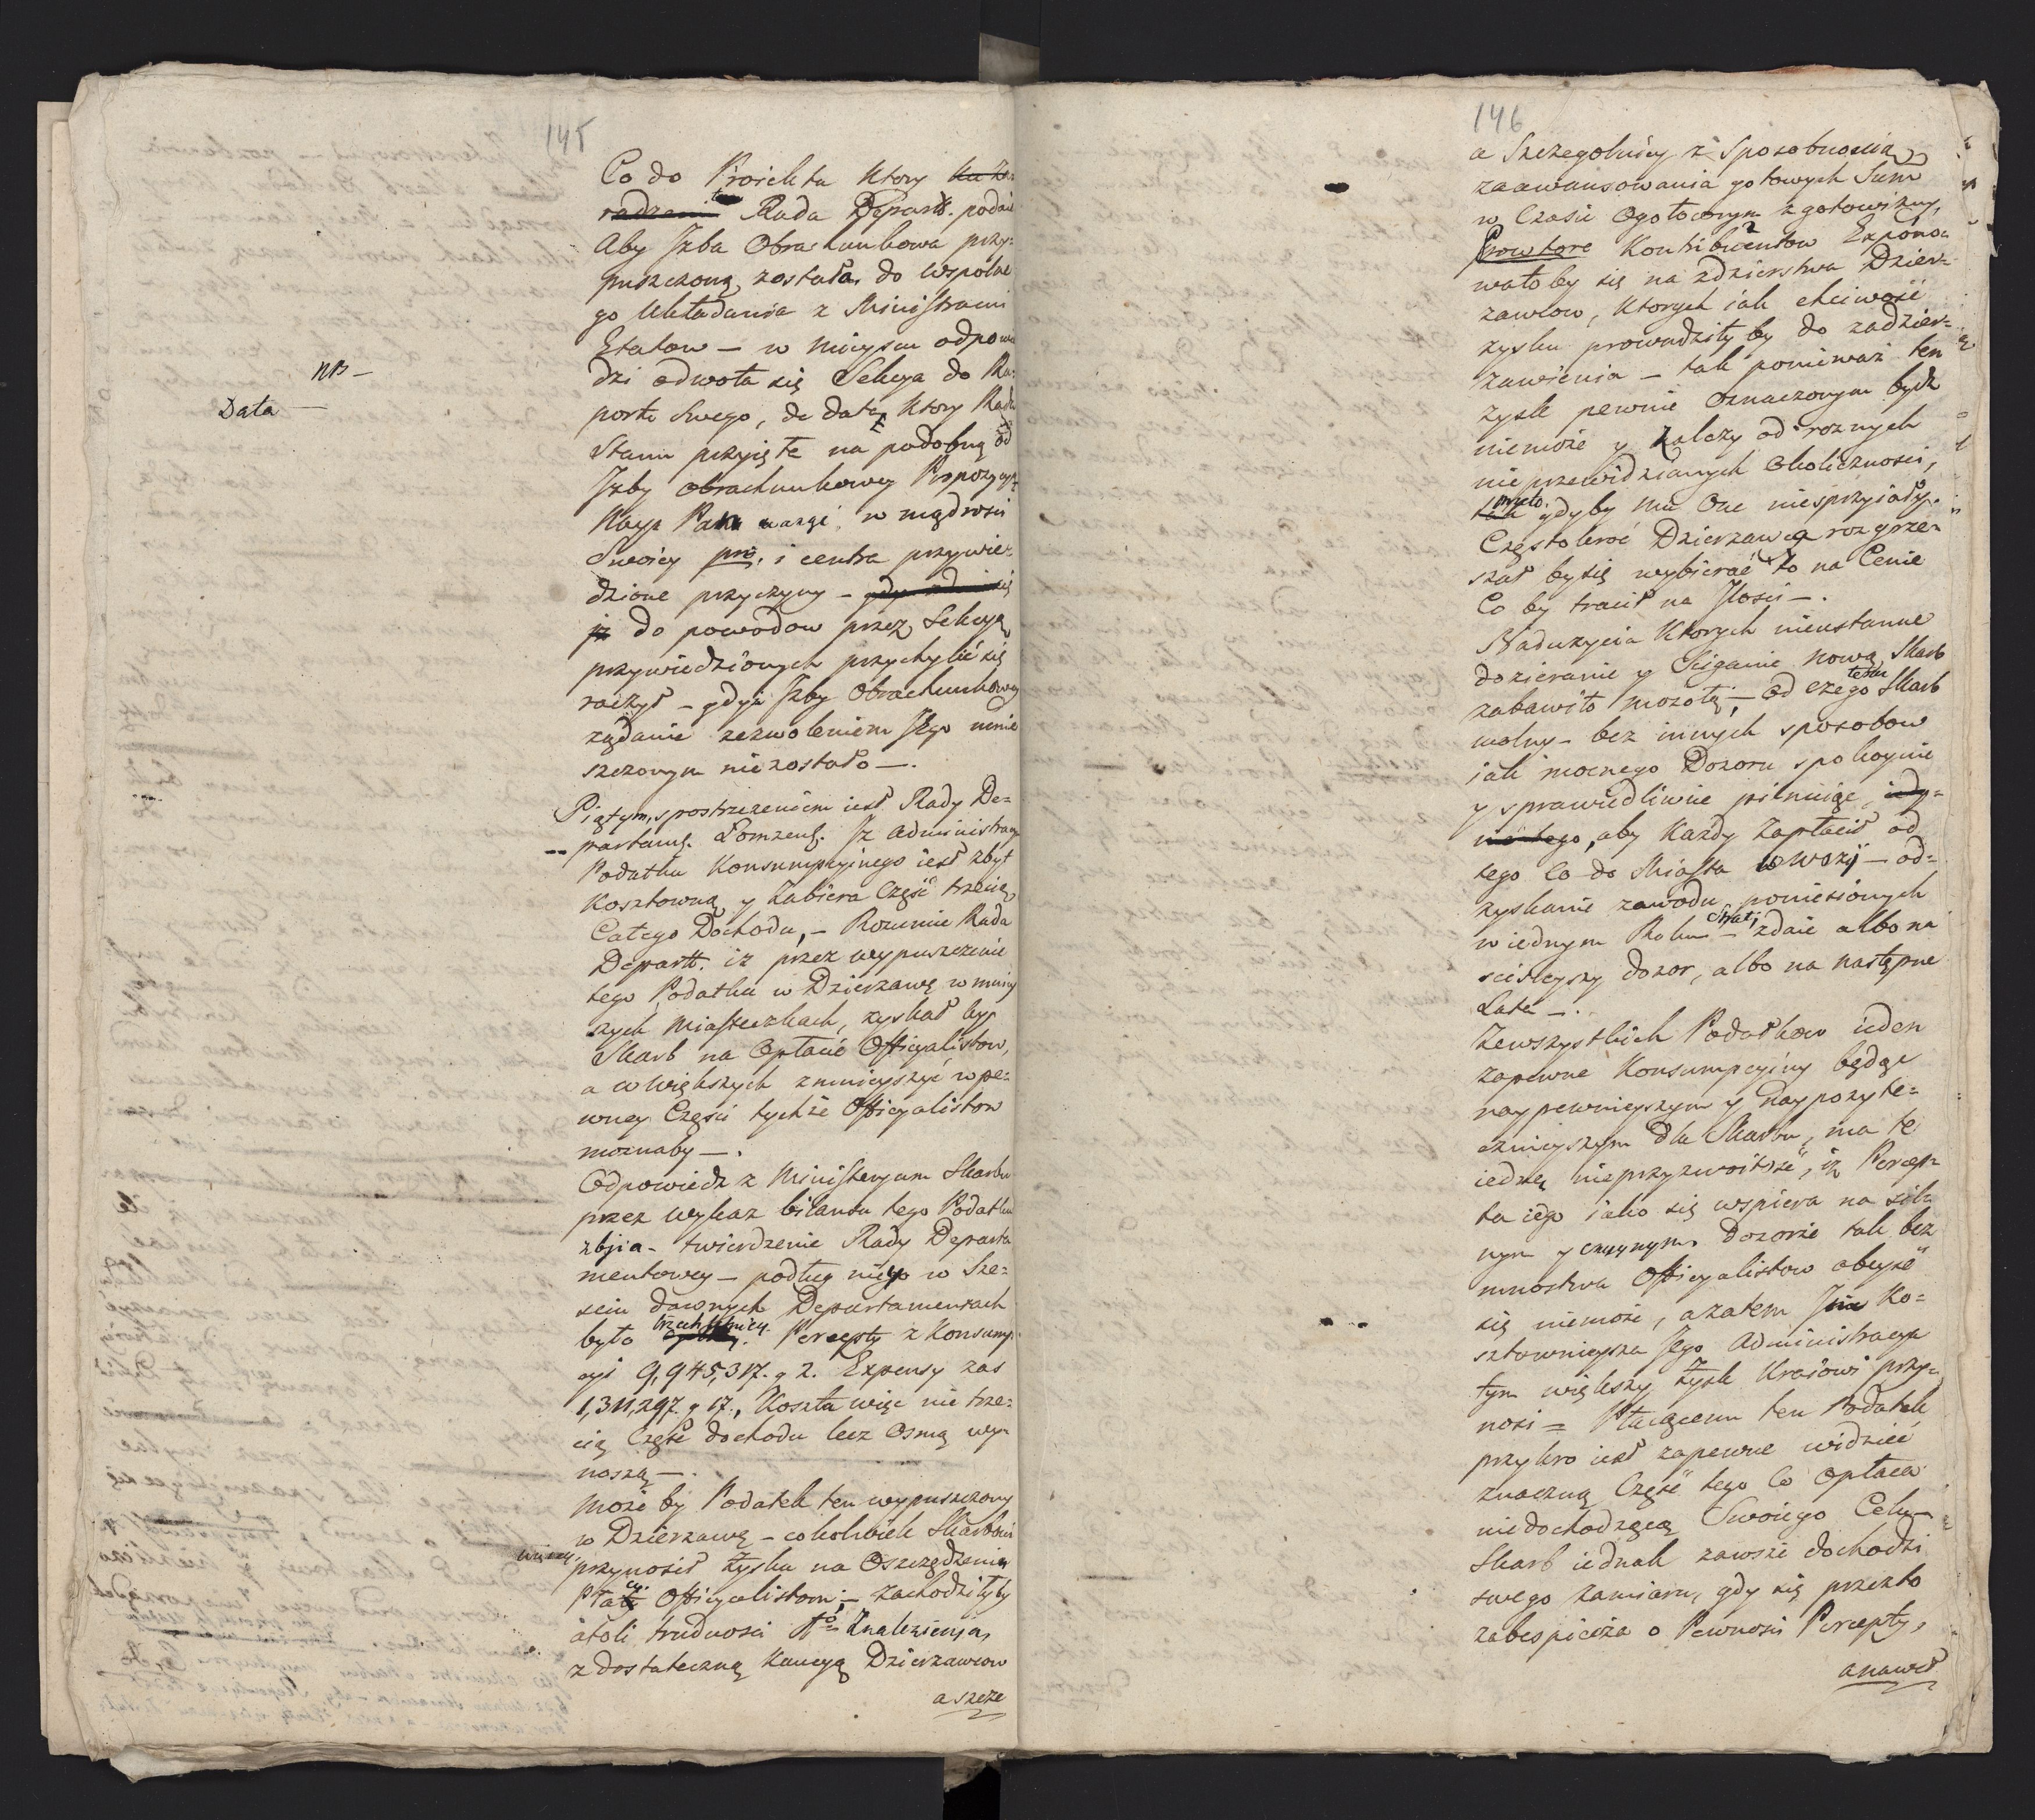 145
Co do Proiektu ktory
Rada Departt. podaie
Aby Jzba Obrachunkowa przy=
puszczoną została, do wspolne
go Układania z Ministrami
Etatow — w mieyscu odpowie
NB —
dzi odwoła się Sekcya do Ra=
Data —
portu Swego, de data Ktory Rada
Stanu przyięte na podobną od
Jzby Obrachunkowey Propozycyą
Nayj Pan w mądrości
Swoiey pro. i contra przywie=
dzione przyczyny —
iż do powodow przez Sekcyą
przywiedzionych przychylić się
raczył — gdyż Jzby Obrachunkowey
żądanie zezwoleniem Jego umie
szczonym nie zostało —.
Piątym spostrzeżeniem iest Rady De=
partamt. Łomżensk. Jż Administracya
Podatku Konsumpcyinego iest zbyt
Kosztowną y zabiera Część trzecią
Całego Dochodu, — Rozumie Rada
Departt. iż przez wypuszczenie
tego Podatku w Dzierzawę w mniey
szych Miasteczkach, zyskał by
Skarb na Opłacie Officyalistow,
a w większych zmnieyszyć w pe=
wney Części tychże Officyalistow
możnaby —.
Odpowiedz z Ministeryum Skarbu
przez wykaz bilansu tego Podatku
zbija — twierdzenie Rady Departa
mentowey — podług niego w Sze=
ściu dawnych Departamentach
było Percepty z Konsump
cyi 9,945,317. g 2. Expensy zas
1,311,297. g 17., Koszta więc nie trze=
cią Część dochodu lecz Osmą wy=
noszą —.
Może by Podatek ten wypuszczony
w Dzierzawę — cokolwiek Skarbowi
więcey
przynosił zysku na Oszczędzeniu
Płacy Officyalistom; — zachodziłyby
atoli trudności 1o Znalezienia,
z dostateczną Kaucyą Dzierzawcow
a szcze
146
a Szczegolniey z Sposobnością
zaawansowania gotowych Sum
w Czasie Ogołoconym z gotowizny,
Kontribuentow Expono=
wałoby się na zdzierstwa Dzier=
zawcow, ktorych iak chciwość
zysku prowadziły by do zadzier=
zawienia — tak ponieważ ten
zysk pewnie Oznaczonym bydz
niemoże y zależy od roznych
nieprzewidzianych Okoliczności,
przeto gdyby mu One niesprzyiały.
Częstokroć Dzierzawca rozgrze=
szał by się wybierać to na Cenie
Co by tracił na Jlości —.
Nadużycia Ktorych nieustanne
dozieranie y Sciganie nową Skarb
zabawiło mozołą; — od czego teraz Skarb
wolny — bez innych sposobow
iak mocnego Dozoru spokoynie
y sprawiedliwie pilnuiąc,
aby Każdy Zapłacił od
tego Co do Miasta wwozij — od=
zyskanie zawodu poniesionych
w iednym Roku strat, zdaie albo na
ścisleyszy dozor, albo na następne
Lata —.
Zewszystkich Podatkow ieden
zapewne Konsumpcyiny będąc
naypewnieyszym y naypożyte=
cznieyszym dla Skarbu, ma te
iednę nieprzyzwoitość, iż Percep=
ta iego iako się wspiera na sil=
nym y czynnym Dozorze tak bez
mnostwa Officyalistow obeyść
się niemoże, a zatem Ko=
sztownieysza Jego Administracya
tym większy Zysk Kraiowi przy=
nosi = Płacącemu ten Podatek
przykro iest zapewne widzieć
znaczną Część tego Co Opłaca
niedochodzącą Swoiego Celu —
Skarb iednak zawsze dochodzi
swego zamiaru, gdy się przezto
zabespiecza o Pewności Percepty,
a nawet